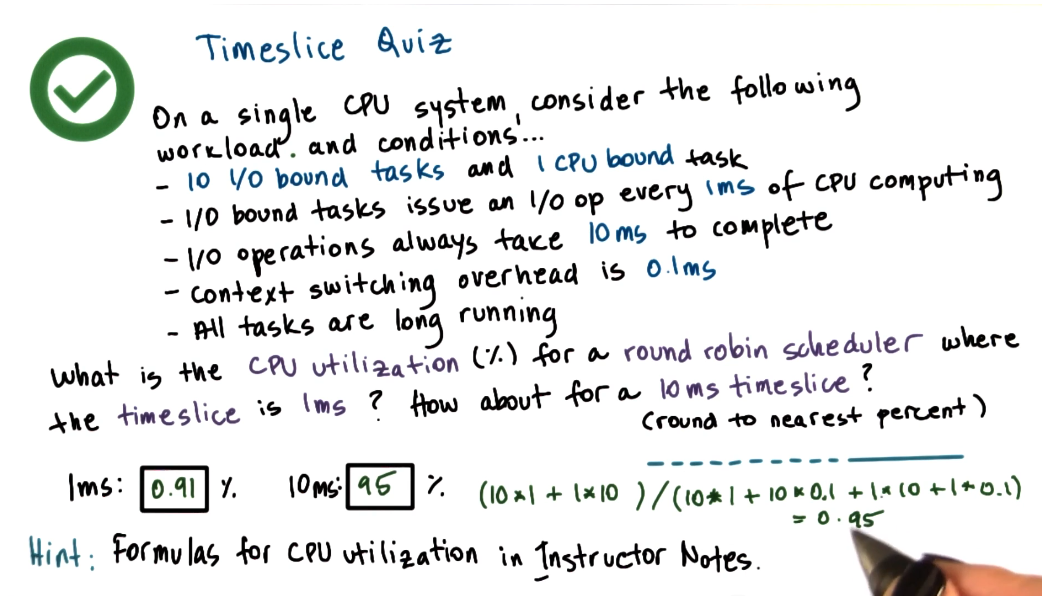 Timeslice Quiz
On a single CPU system, consider the following
workload. and conditions...
- 10 I/O bound tasks and 1 CPU bound task
- I/O bound tasks issue an I/O op every 1ms of CPU computing
- I/O operations always take 10ms to complete
- Context switching overhead is 0.1ms
- All tasks are long running
What is the CPU utilization (%) for a round robin scheduler where
the timeslice is 1ms? How about for a 10ms timeslice?
(round to nearest percent)
1ms: 0.91 % 10ms: 95 % (10*1 + 1*10 )/(10*1 + 10*0.1 + 1*10 + 1*0.1)
= 0.95
Hint: Formulas for CPU utilization in Instructor Notes.